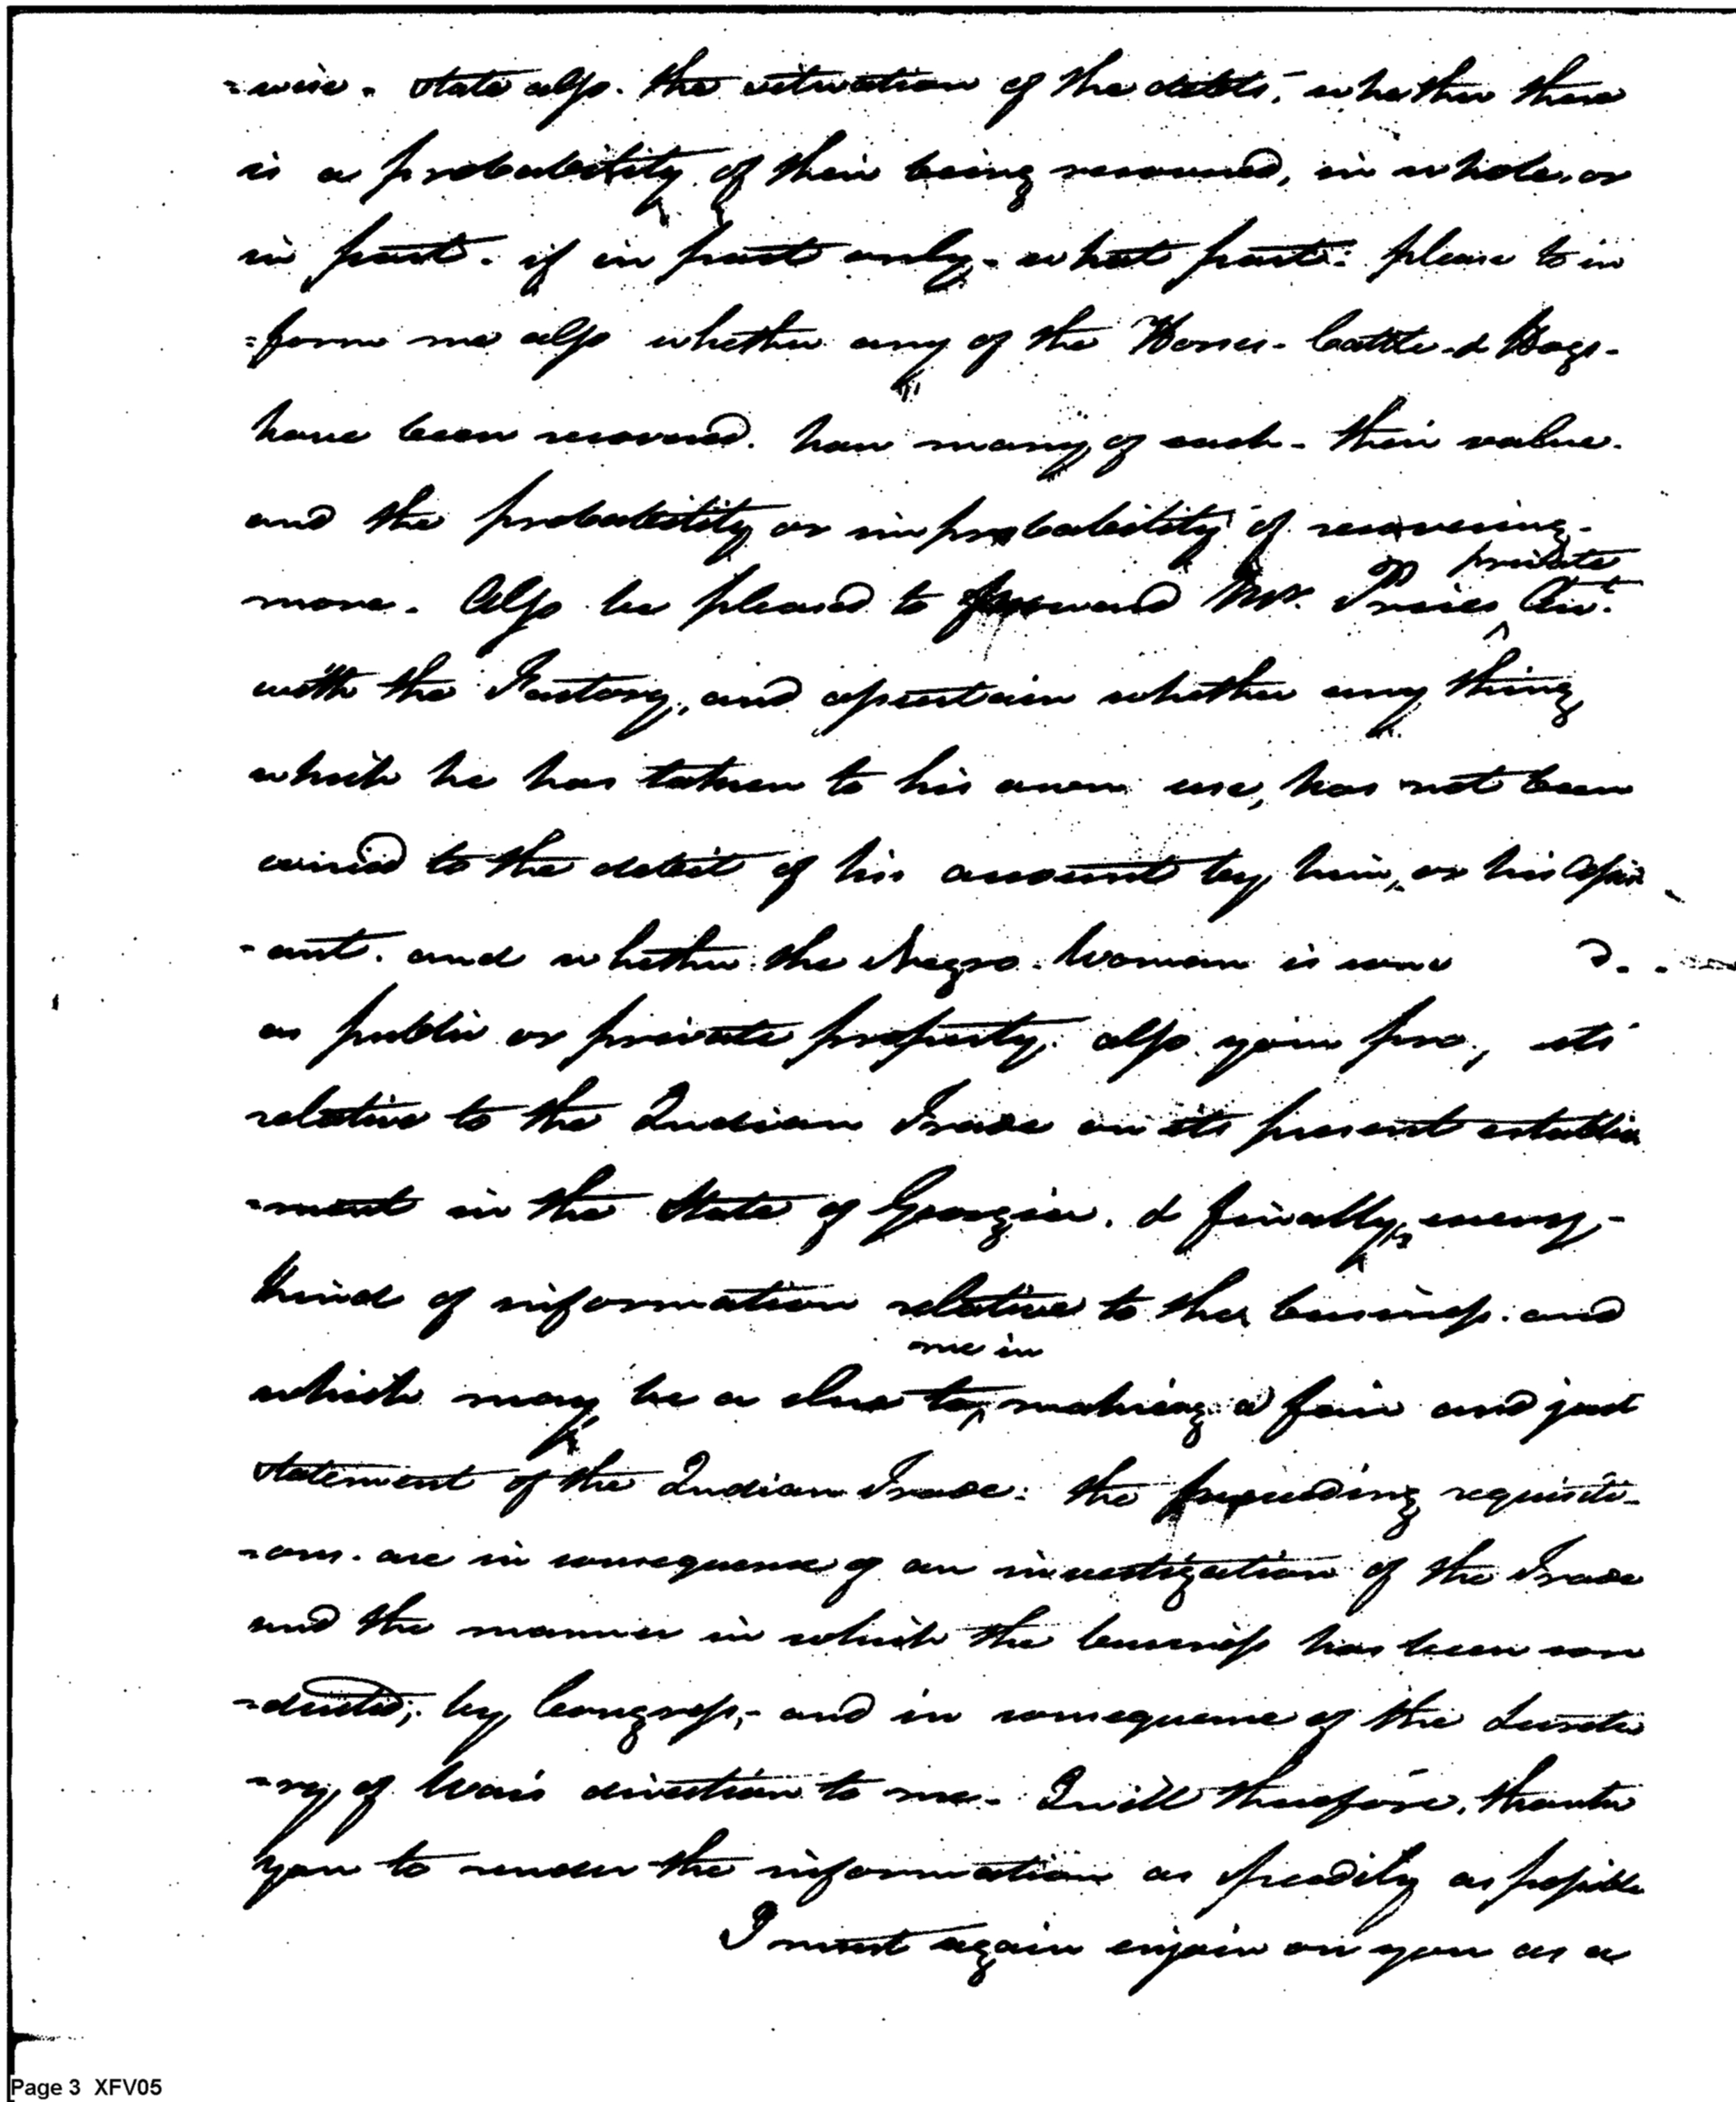 =wise. State also the situation of the debts, whether there
is a probability of their being recovered, in whole, or
in part. if in part only - what part: please to in
=form me also whether any of the Horses - Cattle & Hogs -
have been recovered. how many of each - their value.
and the probability or improbability of recovering -
private
more. Also be pleased to forward Mr. Prices Acct.
with the Factory, and ascertain whether any thing
which he has taken to his own use, has not been
carried to the debit of his account by him, or his Assist
-ant. and whether the Negro Woman is
as public or private property. also your
relative to the Indian Trade on its present establish
-ment in the State of Georgia. & finally, every -
kind of information relative to the business. and
me in
which may be a clue to making a fair and just
statement of the Indian Trade: the preceeding requisiti-
-ons. are in consequence of an investigation of the Trade
and the manner in which the business has been con
-ducted; by Congress, - and in consequence of the Secreta
-ry of War's direction to me. I will therefore, thank
you to render the information as speedily as possible
I must again enjoin on you as a
Page 3 XFV05